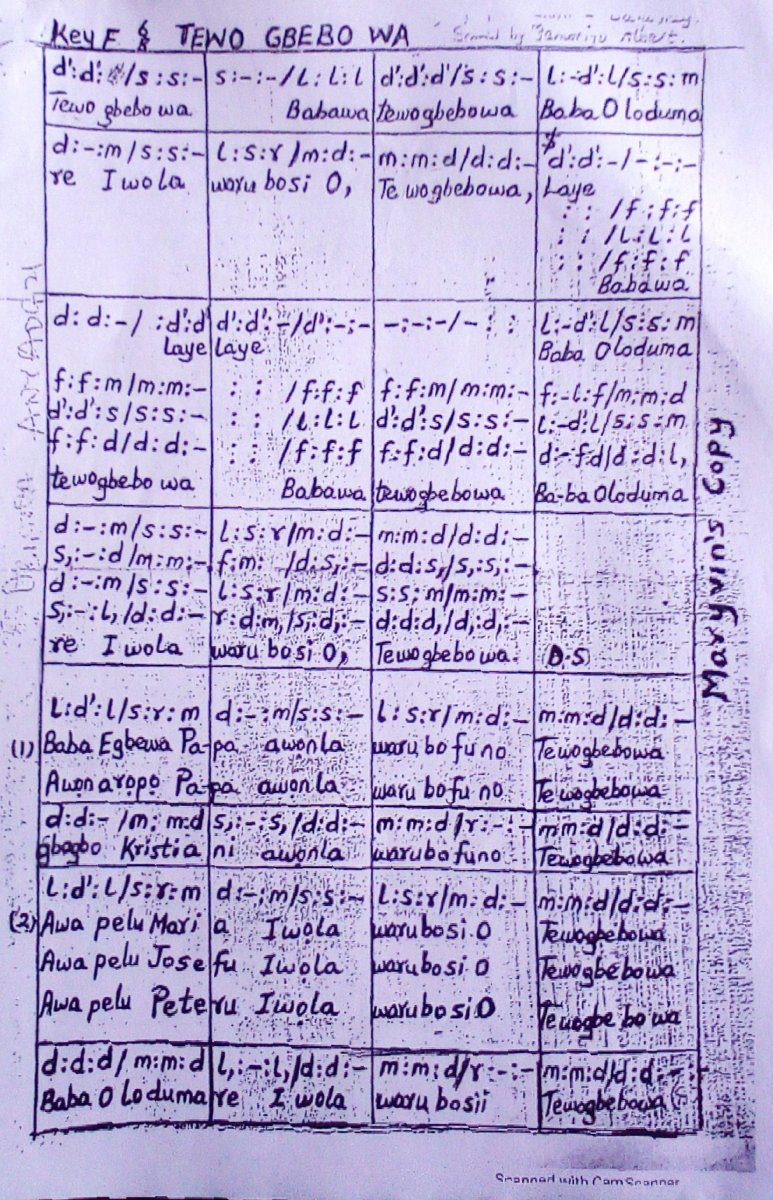 Key F 6/8 TEWO GBEBO WA
Albert.
d':d': /s:s:- s:-:-/L:L:L d':d':d'/s:s:- L:-d':L/s:s:m
Tewo gbebo wa Babawa tewogbebowa Baba Oloduma
d:-:m/s:s:- L:s:r/m:d:- m:m:d/d:d:- d':d':-/-:-:-
re Iwola waru bosi O, Te wogbebowa, Laye
: : /f:f:f
: : /L:L:L
: : /f:f:f
Babawa
d:d:-/ :d':d' d':d':-/d':-:- -:-:-/-: : L:-d':L/s:s:m
Laye Laye Baba Oloduma
f:f:m/m:m:- : : /f:f:f f:f:m/m:m:- f:-L:f/m:m:d
d':d':s/s:s:- : : /L:L:L d':d':s/s:s:- L:-d':L/s:s:m
f:f:d/d:d:- : : /f:f:f f:f:d/d:d:- d:-f:d/d:d:L,
tewogbebo wa Babawa tewogbebowa Ba-ba Oloduma
d:-:m/s:s:- L:s:r/m:d:- m:m:d/d:d:-
s,:-:d/m:m:- f:m: /d:s,:- d:d:s,/s,:s,:-
d:-:m/s:s:- L:s:r/m:d:- s:s:m/m:m:-
s,:-:L,/d:d:- r:d:m,/s,:d,:- d:d:d,/d,:d,:-
re Iwola waru bosi O, Tewogbebowa. D.S
L:d':L/s:r:m d:-:m/s:s:- L:s:r/m:d:- m:m:d/d:d:-
(1) Baba Egbewa Pa-pa awonla waru bo fu no Tewogbebowa
Awon aropo Pa-pa awonla waru bo fu no Te wogbebowa
d:d:-/m:m:d s,:-:s,/d:d:- m:m:d/r:-:- m:m:d/d:d:-
gbogbo Kristia ni awonla warubofuno Tewogbebowa
L:d':L/s:r:m d:-:m/s:s:- L:s:r/m:d:- m:m:d/d:d:-
(2) Awa pelu Mari a Iwola warubosi O Tewogbebowa
Awa pelu Jose fu Iwola warubosi O Tewogbebowa
Awa pelu Pete ru Iwola warubosi O Tewogbe bo wa
d:d:d/m:m:d L,:-:L,/d:d:- m:m:d/r:-:- m:m:d/d:d:-
Baba Oloduma re Iwola waru bosii Tewogbebowa
Maryvin's Copy
Scanned with CamScanner